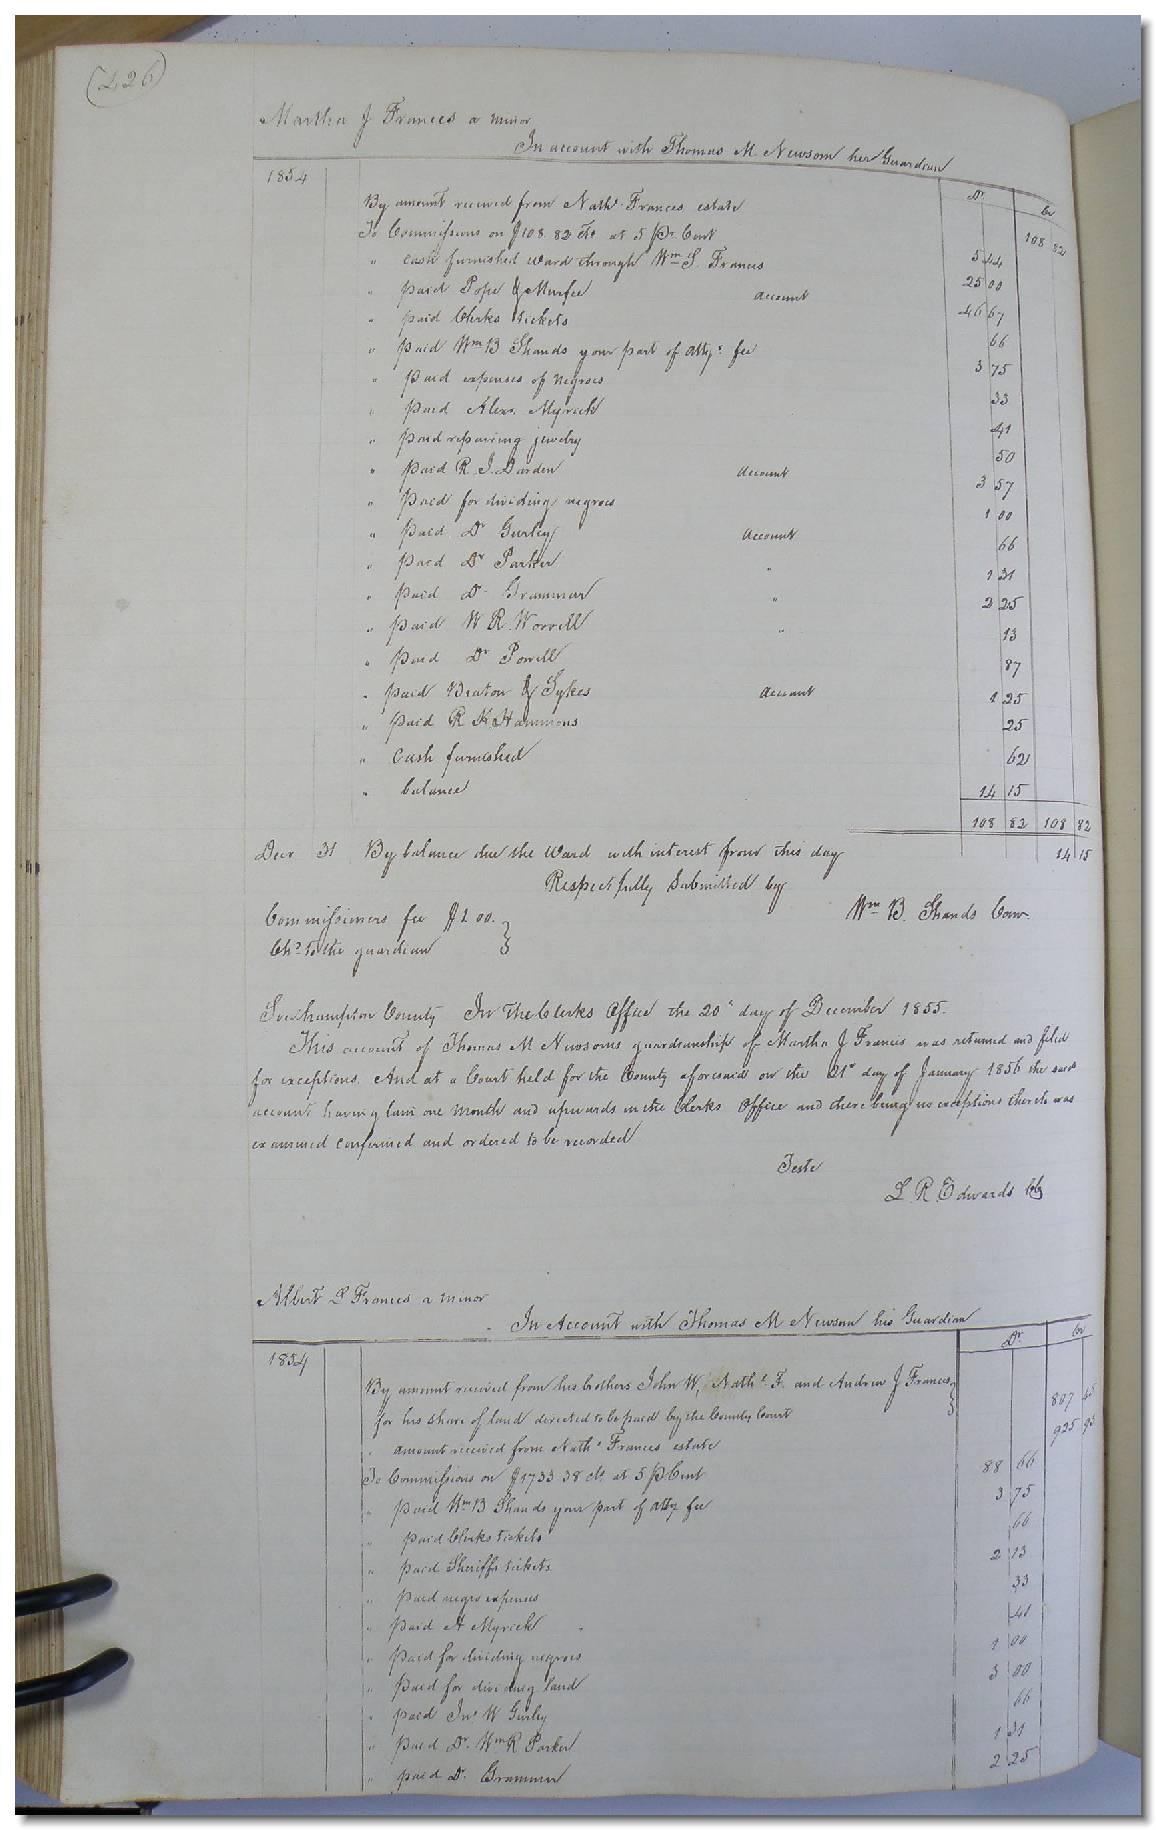 (226)
Martha J Frances a minor
In account with Thomas M. Newsom her Guardian
1854 Dr. Cr
By amount received from Nathl. Frances estate 108 82
To Commissions on $108.82 cts at 5 pr. Cent 5 44
" cash furnished ward through Wm S. Francis 25 00
" paid Pope & Murfee account 46 67
" paid Clerks tickets 66
" paid Wm B Shands your part of attys. fee 3 75
" paid expenses of negroes 33
" paid Alexr. Myrick 41
" paid repairing jewelry 50
" paid R. J. Darden account 3 57
" paid for dividing negroes 1 00
" paid Dr Gurley account 66
" paid Dr Parker " 1 31
" paid Dr Grammar " 2 25
" paid W R Worrell " 13
" paid Dr Powell 87
" paid Beaton & Sykes account 1 25
" paid R K Hammons 25
" cash furnished 62
" balance 14 15
108 82 108 82
Decr 31 By balance due the ward with interest from this day 14 15
Respectfully Submitted by
Wm B. Shands Com.
Commissioners fee $1.00.
Chd. to the guardian
Southampton County In The Clerks Office the 20th day of December 1855.
This account of Thomas M Newsoms guardianship of Martha J Francis was returned and filed
for exceptions. And at a Court held for the County aforesaid on the 21st day of January 1856 the said
account having lain one month and upwards in the Clerks Office and there being no exceptions thereto was
examined confirmed and ordered to be recorded
Teste
L. R. Edwards Clk
Albert L Frances a minor
In Account with Thomas M Newsom his Guardian
1854 Dr. Cr
By amount received from his brothers John W, Nathl. F. and Andrew J Frances
for his share of land directed to be paid by the County Court 807 45
" amount received from Nathl. Frances estate 925 93
To Commissions on $1733.38 cts. at 5 pCent 88 66
" paid Wm B Shands your part of atty fee 3 75
" paid Clerks tickets 66
" paid Sheriffs tickets 2 13
" paid negro expenses 33
" paid A Myrick 41
" paid for dividing negroes 1 00
" paid for dividing land 3 00
" paid Jno. W Gurley 66
" paid Dr. Wm R Parker 1 31
" paid Dr. Grammar 2 25